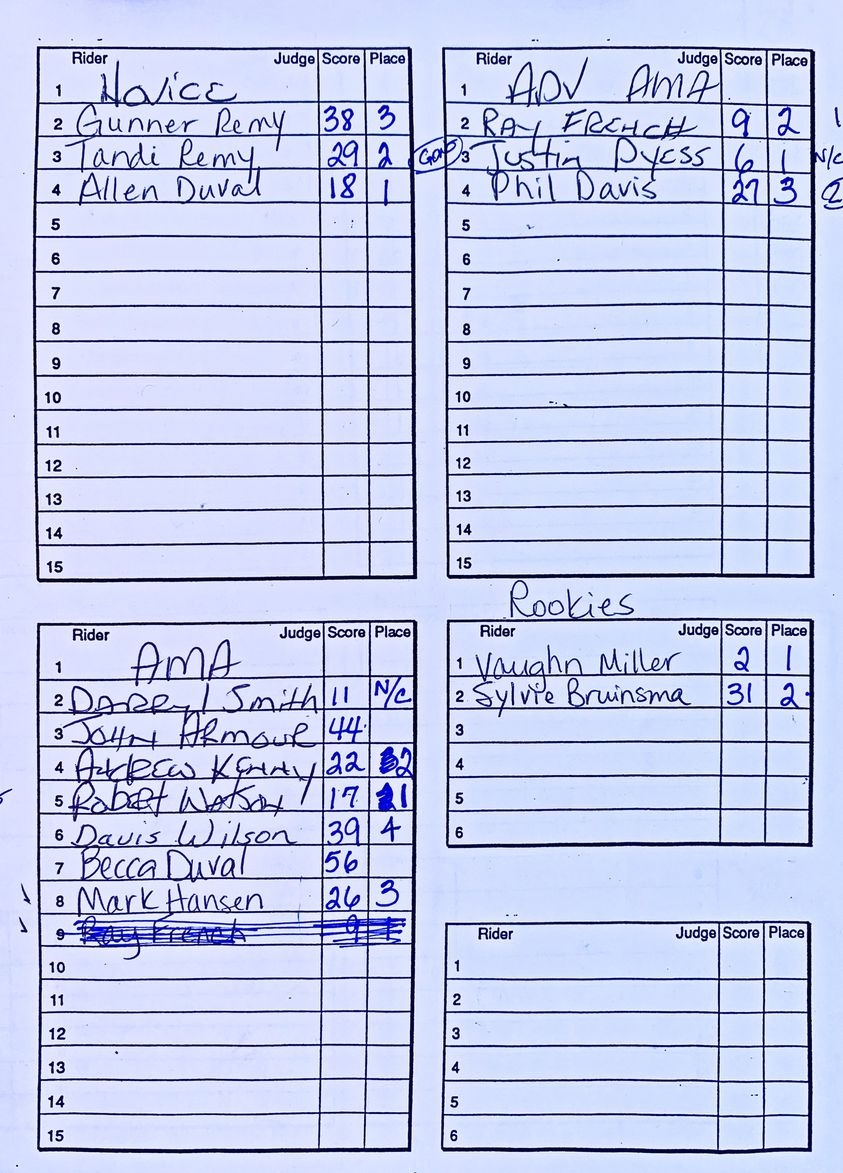 Rider Judge Score Place
1 Novice
2 Gunner Remy 38 3
3 Tandi Remy 29 2
4 Allen Duval 18 1
5
6
7
8
9
10
11
12
13
14
15
Rider Judge Score Place
1 ADV AMA
2 RAY FRENCH 9 2 1
3 Justin Dyess 6 1 N/C
4 Phil Davis 27 3 2
5
6
7
8
9
10
11
12
13
14
15
Rider Judge Score Place
1 AMA
2 DARRYl Smith 11 N/C
3 JOHN ARMOUR 44
4 ANDREW KENNY 22 2
5 RobERT WATSON 17 1
6 Davis Wilson 39 4
7 Becca Duval 56
8 Mark Hansen 26 3
9 Ray French 9 1
10
11
12
13
14
15
Rookies
Rider Judge Score Place
1 Vaughn Miller 2 1
2 Sylvie Bruinsma 31 2
3
4
5
6
Rider Judge Score Place
1
2
3
4
5
6